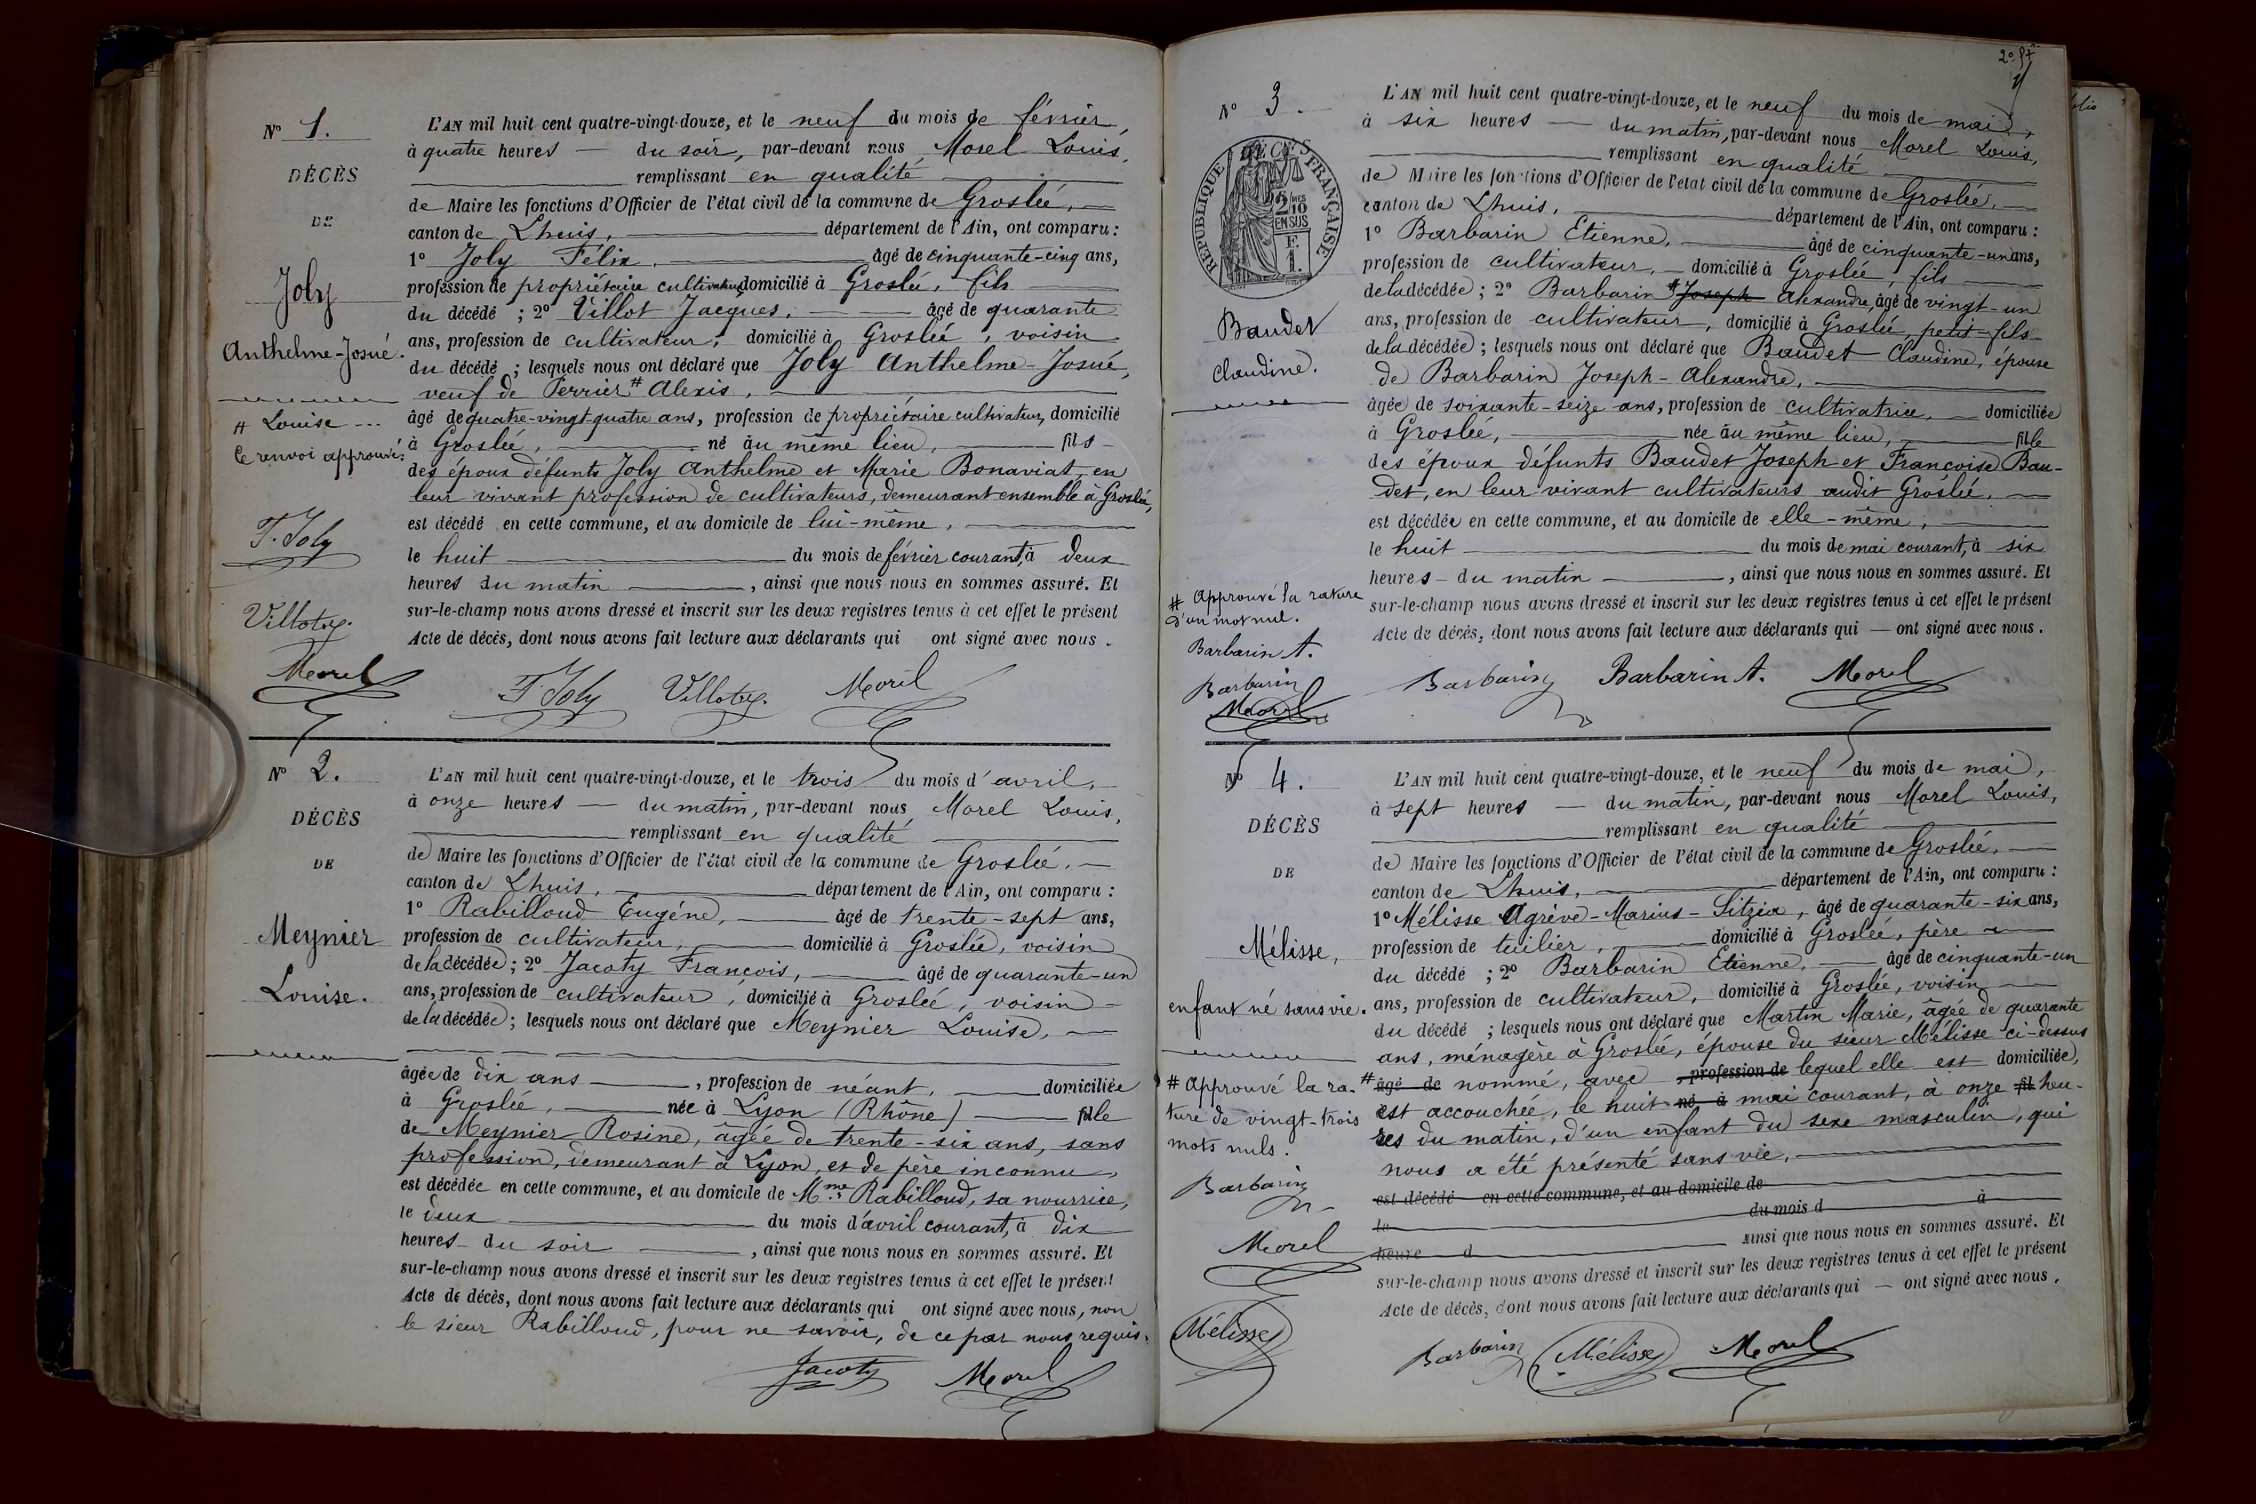 N° 1.
DÉCÈS
DE
Joly
Anthelme-Josué.
# Louise ---
Ce renvoi approuvé:
F. Joly
Villotj.
Morel
L'AN mil huit cent quatre-vingt-douze, et le neuf du mois de février,
à quatre heures — du soir, par-devant nous Morel Louis,
remplissant en qualité
de Maire les fonctions d'Officier de l'état civil de la commune de Groslée, —
canton de Lhuis, — département de l'Ain, ont comparu :
1° Joly Félix, — âgé de cinquante-cinq ans,
profession de propriétaire cultivateur, domicilié à Groslée, fils —
du décédé ; 2° Villot Jacques, — âgé de quarante
ans, profession de cultivateur, domicilié à Groslée, voisin
du décédé ; lesquels nous ont déclaré que Joly Anthelme-Josué,
veuf de Perrier # Alexis, —
âgé de quatre-vingt-quatre ans, profession de propriétaire cultivateur, domicilié
à Groslée, — né au même lieu, — fils —
des époux défunts Joly Anthelme et Marie Bonaviat, en
leur vivant profession de cultivateurs, demeurant ensemble à Groslée,
est décédé en cette commune, et au domicile de lui-même, —
le huit — du mois de février courant, à deux
heures du matin —, ainsi que nous nous en sommes assuré. Et
sur-le-champ nous avons dressé et inscrit sur les deux registres tenus à cet effet le présent
Acte de décès, dont nous avons fait lecture aux déclarants qui ont signé avec nous.
F Joly Villotj. Morel
N° 2.
DÉCÈS
DE
Meynier
Louise.
L'AN mil huit cent quatre-vingt-douze, et le trois du mois d'avril, —
à onze heures — du matin, par-devant nous Morel Louis,
remplissant en qualité
de Maire les fonctions d'Officier de l'état civil de la commune de Groslée, —
canton de Lhuis, — département de l'Ain, ont comparu :
1° Rabilloud Eugéne, — âgé de trente-sept ans,
profession de cultivateur, — domicilié à Groslée, voisin
de la décédée ; 2° Jacoty François, — âgé de quarante-un
ans, profession de cultivateur, domicilié à Groslée, voisin —
de la décédée ; lesquels nous ont déclaré que Meynier Louise, —
âgée de dix ans —, profession de néant, — domiciliée
à Groslée, — née à Lyon (Rhône) — fille
de Meynier Rosine, âgée de trente-six ans, sans
profession, demeurant à Lyon, et de père inconnu,
est décédée en cette commune, et au domicile de Mme Rabilloud, sa nourrice,
le deux — du mois d'avril courant, à dix
heures du soir —, ainsi que nous nous en sommes assuré. Et
sur-le-champ nous avons dressé et inscrit sur les deux registres tenus à cet effet le présent
Acte de décès, dont nous avons fait lecture aux déclarants qui ont signé avec nous, non
le sieur Rabilloud, pour ne savoir, de ce par nous requis.
Jacoty Morel
N° 3.
RÉPUBLIQUE FRANÇAISE
2/10 EN SUS
Baudet
Claudine.
# Approuvé la rature
d'un mot nul.
Barbarin A.
Barbarin
Morel
L'AN mil huit cent quatre-vingt-douze, et le neuf du mois de mai,
à six heures — du matin, par-devant nous Morel Louis,
remplissant en qualité
de Maire les fonctions d'Officier de l'état civil de la commune de Groslée, —
canton de Lhuis, — département de l'Ain, ont comparu :
1° Barbarin Etienne, — âgé de cinquante-un ans,
profession de cultivateur, — domicilié à Groslée, fils —
de la décédée ; 2° Barbarin # Joseph Alexandre, âgé de vingt-un
ans, profession de cultivateur, domicilié à Groslée, petit-fils
de la décédée ; lesquels nous ont déclaré que Baudet Claudine, épouse
de Barbarin Joseph-Alexandre, —
âgée de soixante-seize ans, profession de cultivatrice, — domiciliée
à Groslée, — née au même lieu, — fille
des époux défunts Baudet Joseph et Françoise Bau-
det, en leur vivant cultivateurs audit Groslée. —
est décédée en cette commune, et au domicile de elle-même, —
le huit — du mois de mai courant, à six
heures — du matin —, ainsi que nous nous en sommes assuré. Et
sur-le-champ nous avons dressé et inscrit sur les deux registres tenus à cet effet le présent
Acte de décès, dont nous avons fait lecture aux déclarants qui — ont signé avec nous.
Barbarin Barbarin A. Morel
N° 4.
DÉCÈS
DE
Mélisse,
enfant né sans vie.
# Approuvé la ra-
ture de vingt-trois
mots nuls.
Barbarin
Morel
Mélisse
L'AN mil huit cent quatre-vingt-douze, et le neuf du mois de mai,
à sept heures — du matin, par-devant nous Morel Louis,
remplissant en qualité
de Maire les fonctions d'Officier de l'état civil de la commune de Groslée, —
canton de Lhuis, — département de l'Ain, ont comparu :
1° Mélisse Agrève-Marius-Sitzia, âgé de quarante-six ans,
profession de tuilier, — domicilié à Groslée, père —
du décédé ; 2° Barbarin Etienne, — âgé de cinquante-un
ans, profession de cultivateur, domicilié à Groslée, voisin —
du décédé ; lesquels nous ont déclaré que Martin Marie, âgée de quarante
ans, ménagère à Groslée, épouse du sieur Mélisse ci-dessus
# âgé de nommé, avec , profession de lequel elle est domiciliée,
est accouchée, le huit né à mai courant, à onze fil heu-
res du matin, d'un enfant du sexe masculin, qui
nous a été présenté sans vie, —
est décédé en cette commune, et au domicile de
le du mois d à
heure d ainsi que nous nous en sommes assuré. Et
sur-le-champ nous avons dressé et inscrit sur les deux registres tenus à cet effet le présent
Acte de décès, dont nous avons fait lecture aux déclarants qui — ont signé avec nous.
Barbarin Mélisse Morel